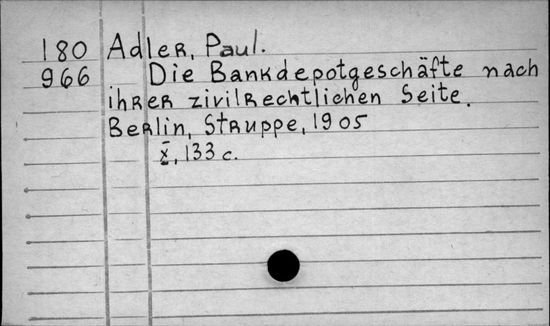 180 Adler, Paul.
966 Die Bankdepotgeschäfte nach
ihrer zivilrechtlichen Seite.
Berlin, Struppe, 1905
X, 133 c.